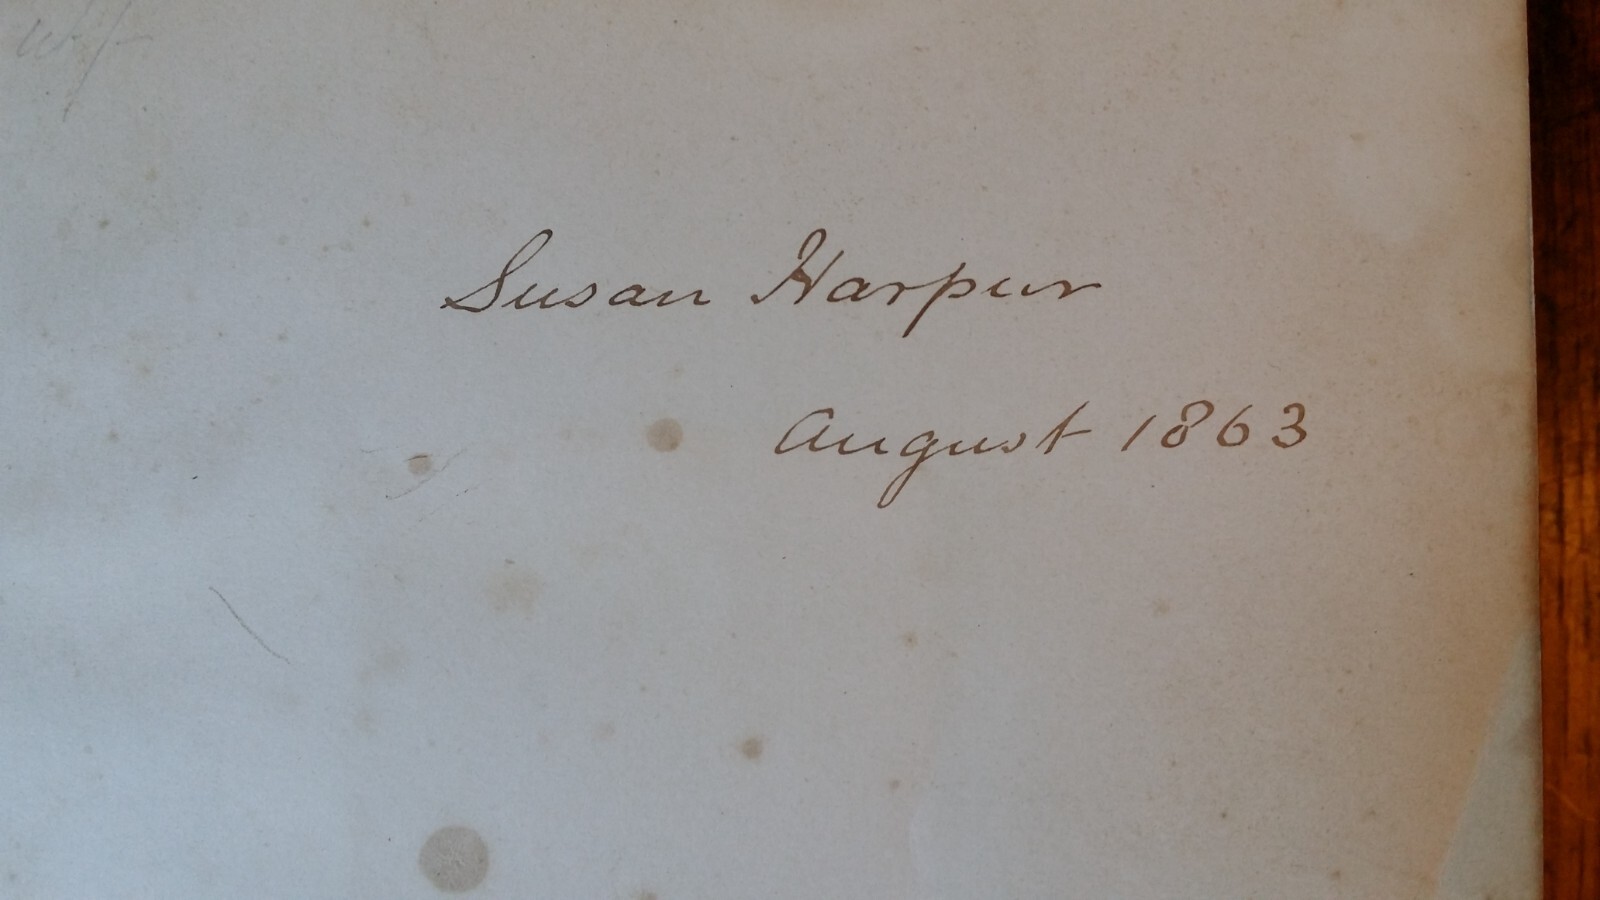 Susan Harpur
August 1863